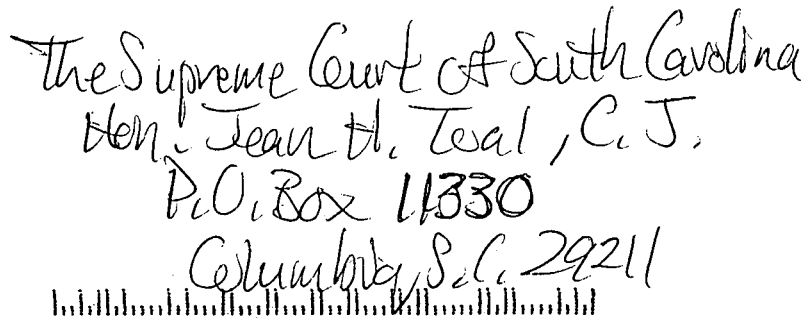 The Supreme Court of South Carolina
Hon. Jean H. Toal, C. J.
P.O. Box 11330
Columbia, S.C. 29211